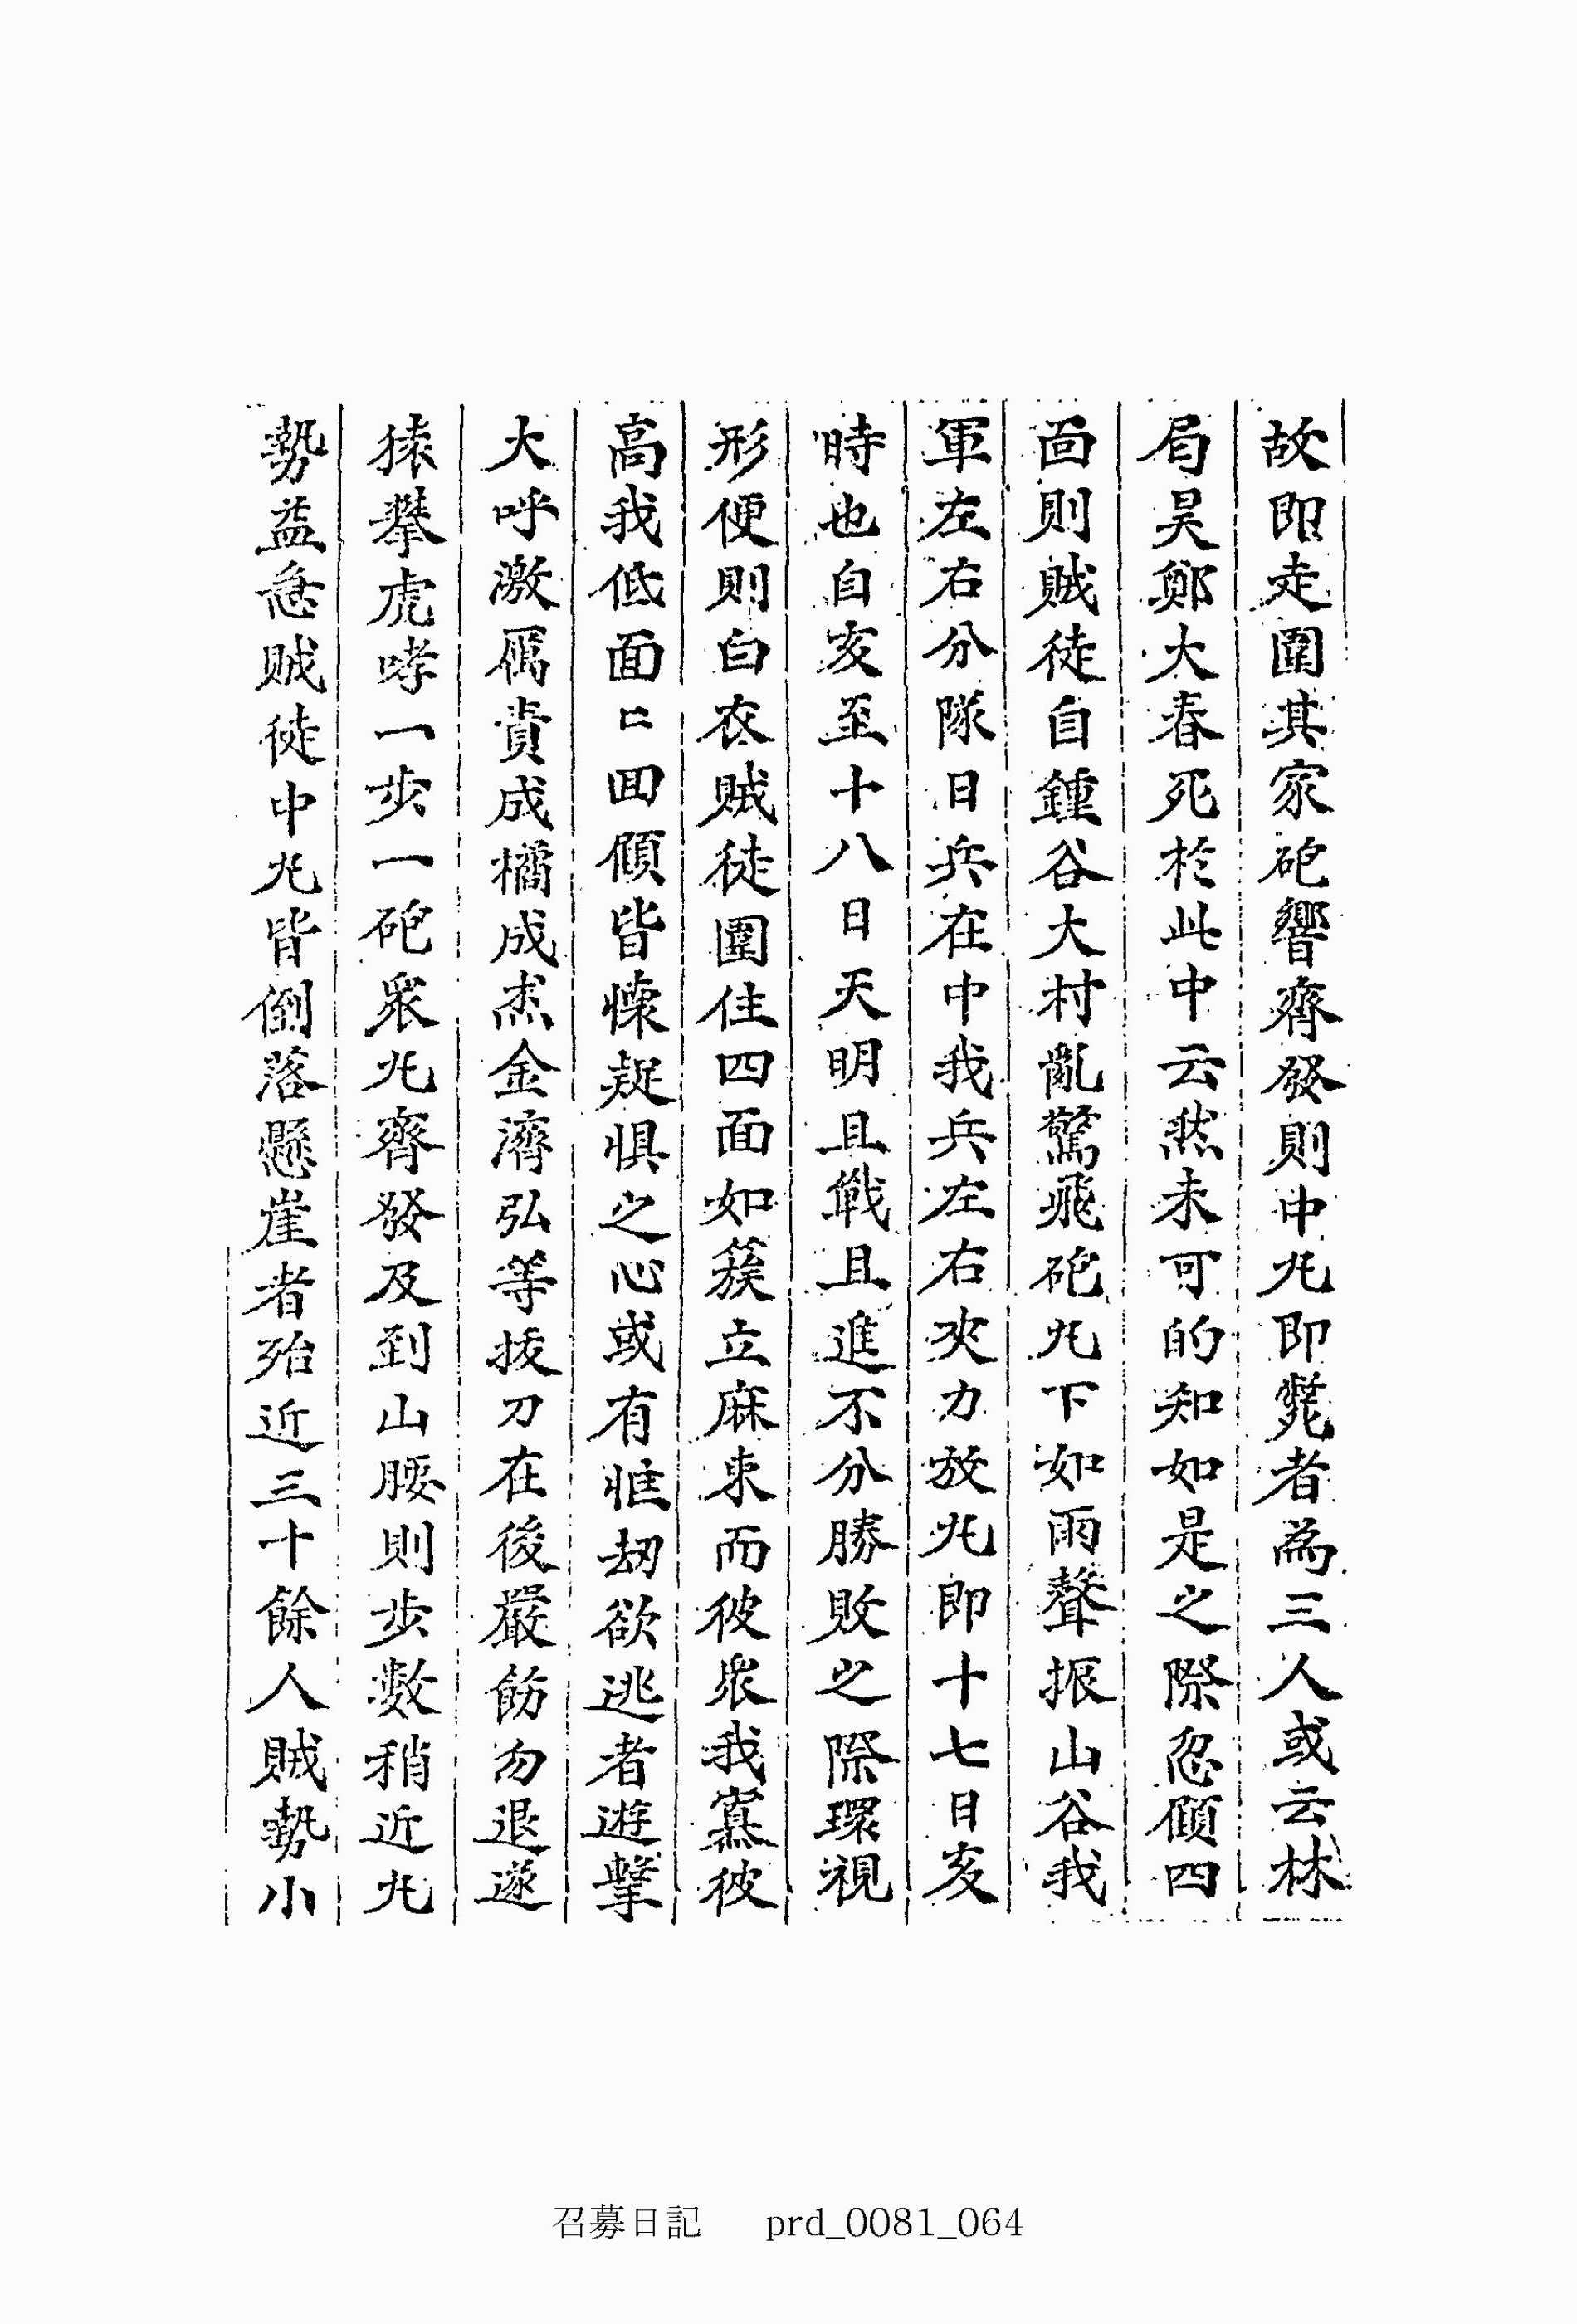 故即走圍其家砲響齊發則中丸即斃者為三人或云林
局吳鄭大春死於此中云然未可的知如是之際忽顧四
面則賊徒自鍾谷大村亂驚飛砲丸下如雨聲振山谷我
軍左右分隊日兵在中我兵左右夾力放丸即十七日亥
時也自亥至十八日天明且戰且進不分勝敗之際環視
形便則白衣賊徒圍住四面如簇立麻束而彼衆我寡彼
高我低面〻回顧皆懷疑惧之心或有恇刼欲逃者遊擊
大呼激厲責成橘成杰金濟弘等拔刀在後嚴飭勿退遂
猿攀虎哮一步一砲衆丸齊發及到山腰則步數稍近丸
勢益急賊徒中丸皆倒落懸崖者殆近三十餘人賊勢小
召募日記 prd_0081_064